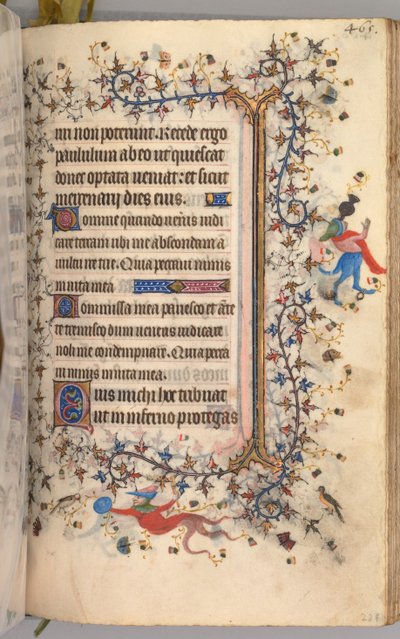 465.
iri non poterunt. Recede ergo
paululum ab eo ut quiescat
donec optata veniat: et sicut
mercenarii dies eius.
Domine quando veneris iudi
care terram ubi me abscondam a
vultu ire tue. Quia peccavi nimis
in vita mea.
Commissa mea pavesco et ante
te erubesco dum veneris iudicare
noli me condempnare. Quia pecca
vi nimis in vita mea.
Quis michi hoc tribuat
ut in inferno protegas